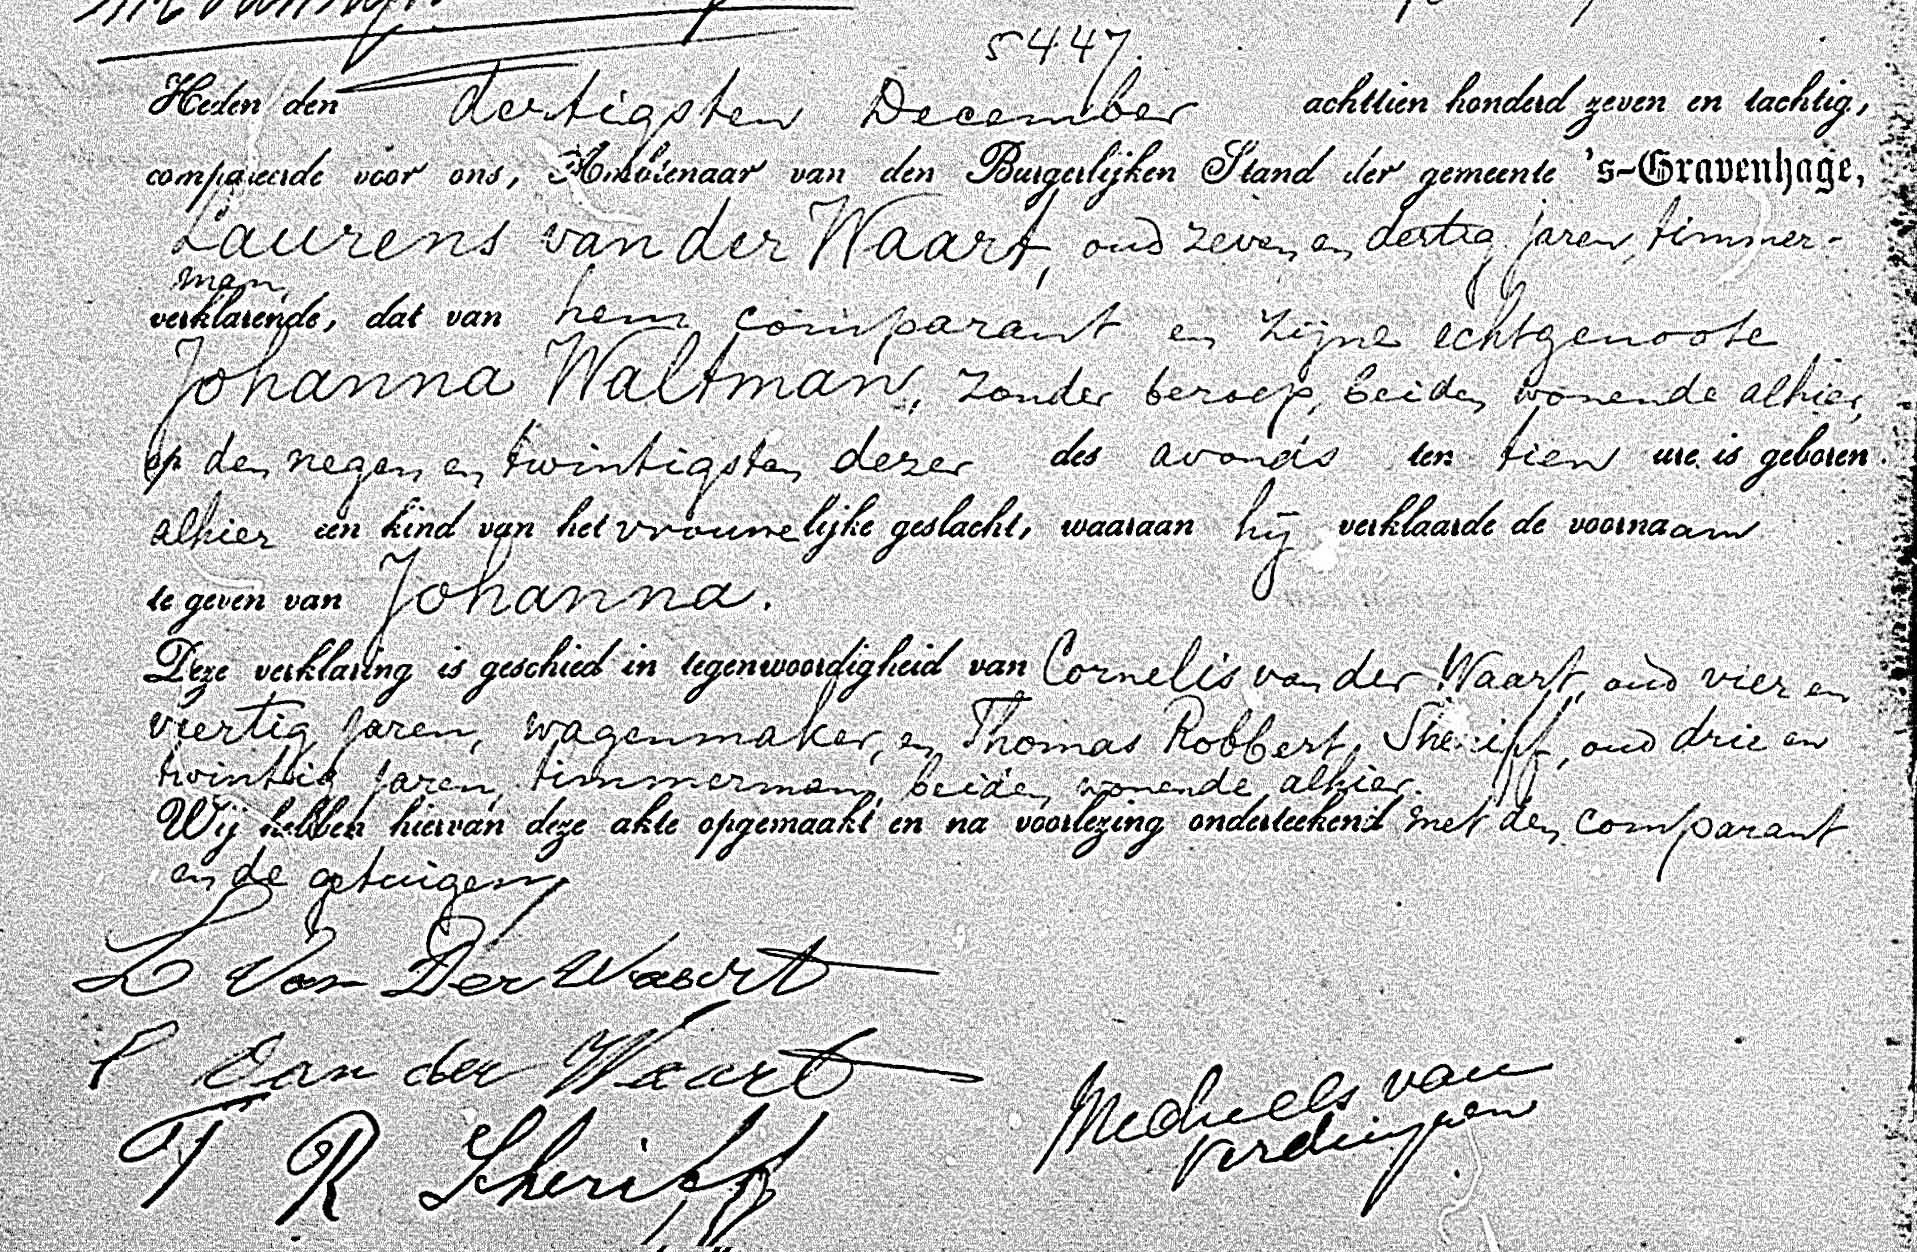 5447.
Heden den dertigsten December achttien honderd zeven en tachtig,
compareerde voor ons, Ambtenaar van den Burgerlijken Stand der gemeente 's-Gravenhage,
Laurens van der Waart, oud zeven en dertig jaren, timmer-
man,
verklarende, dat van hem comparant en zijne echtgenoote
Johanna Waltman, zonder beroep, beiden wonende alhier,
op den negen en twintigsten dezer des avonds ten tien ure is geboren
alhier een kind van het vrouwelijke geslacht, waaraan hij verklaarde de voornaam
te geven van Johanna.
Deze verklaring is geschied in tegenwoordigheid van Cornelis van der Waart, oud vier en
veertig jaren, wagenmaker, en Thomas Robbert Sheriff, oud drie en
twintig jaren, timmerman, beiden wonende alhier.
Wij hebben hiervan deze akte opgemaakt en na voorlezing onderteekend met den comparant
en de getuigen
L Van Der Waart
C Van der Waart
T R Sheriff
Mechiels van
Verdingen